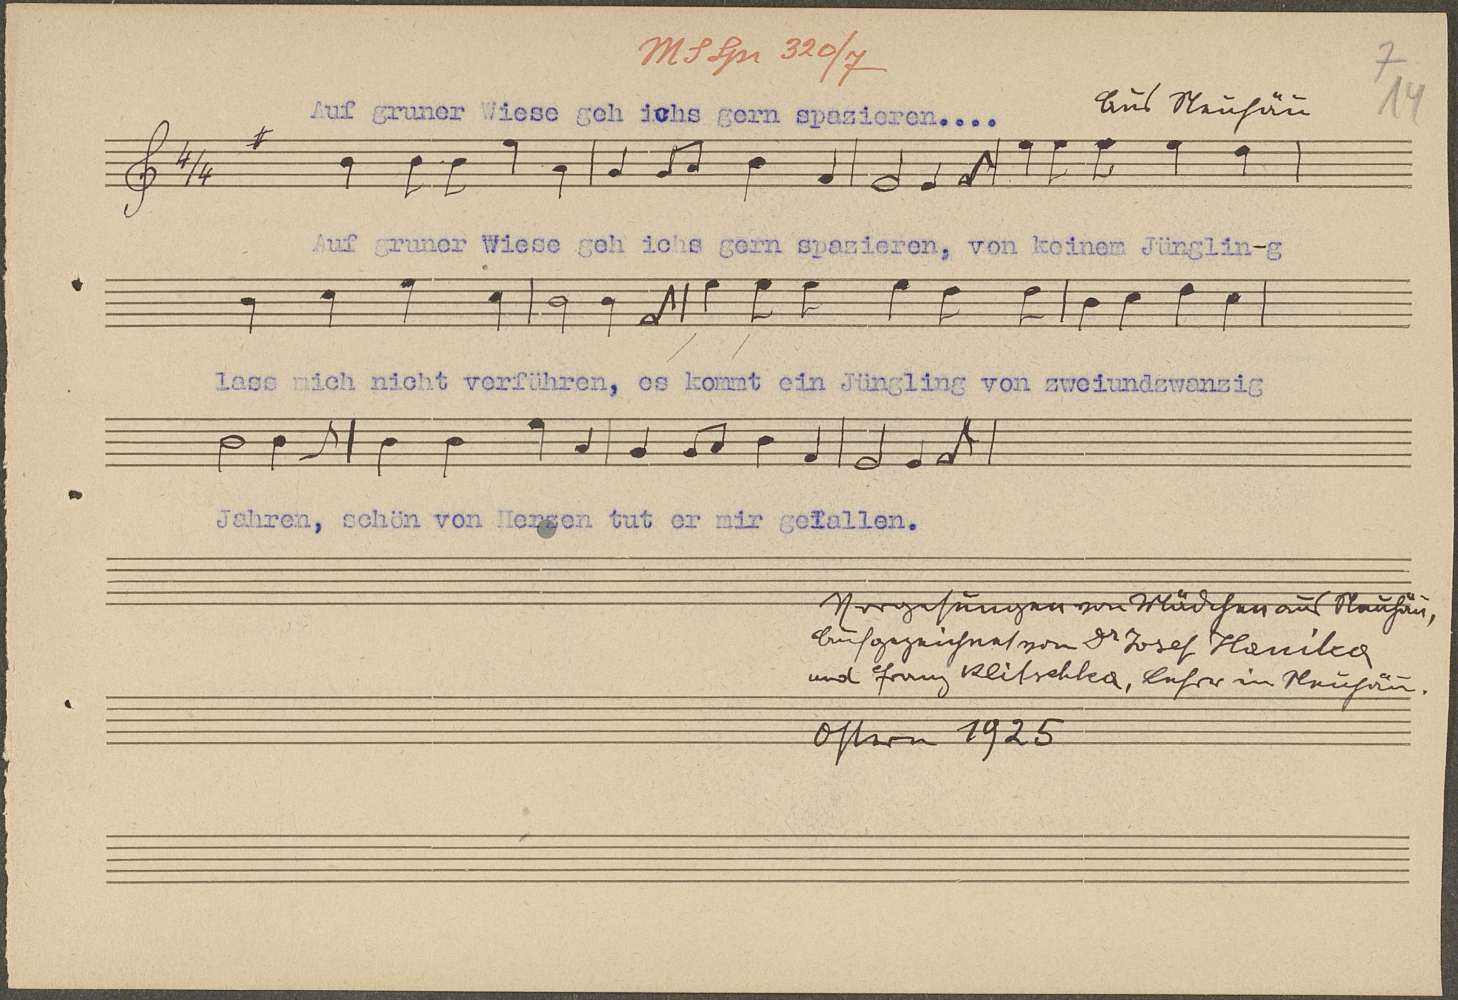 MS Spr 320/7
7
14
Auf gruner Wiese geh ichs gern spazieren....
Aus Neuhäu
4/4
Auf gruner Wiese geh ichs gern spazieren, von keinem Jünglin-g
lass mich nicht verführen, es kommt ein Jüngling von zweiundzwanzig
Jahren, schön von Herzen tut er mir gefallen.
Vorgesungen von Mädchen aus Neuhäu,
Aufgezeichnet von Dr Josef Hanika
und Franz Klitschka, Lehrer in Neuhäu.
Ostern 1925